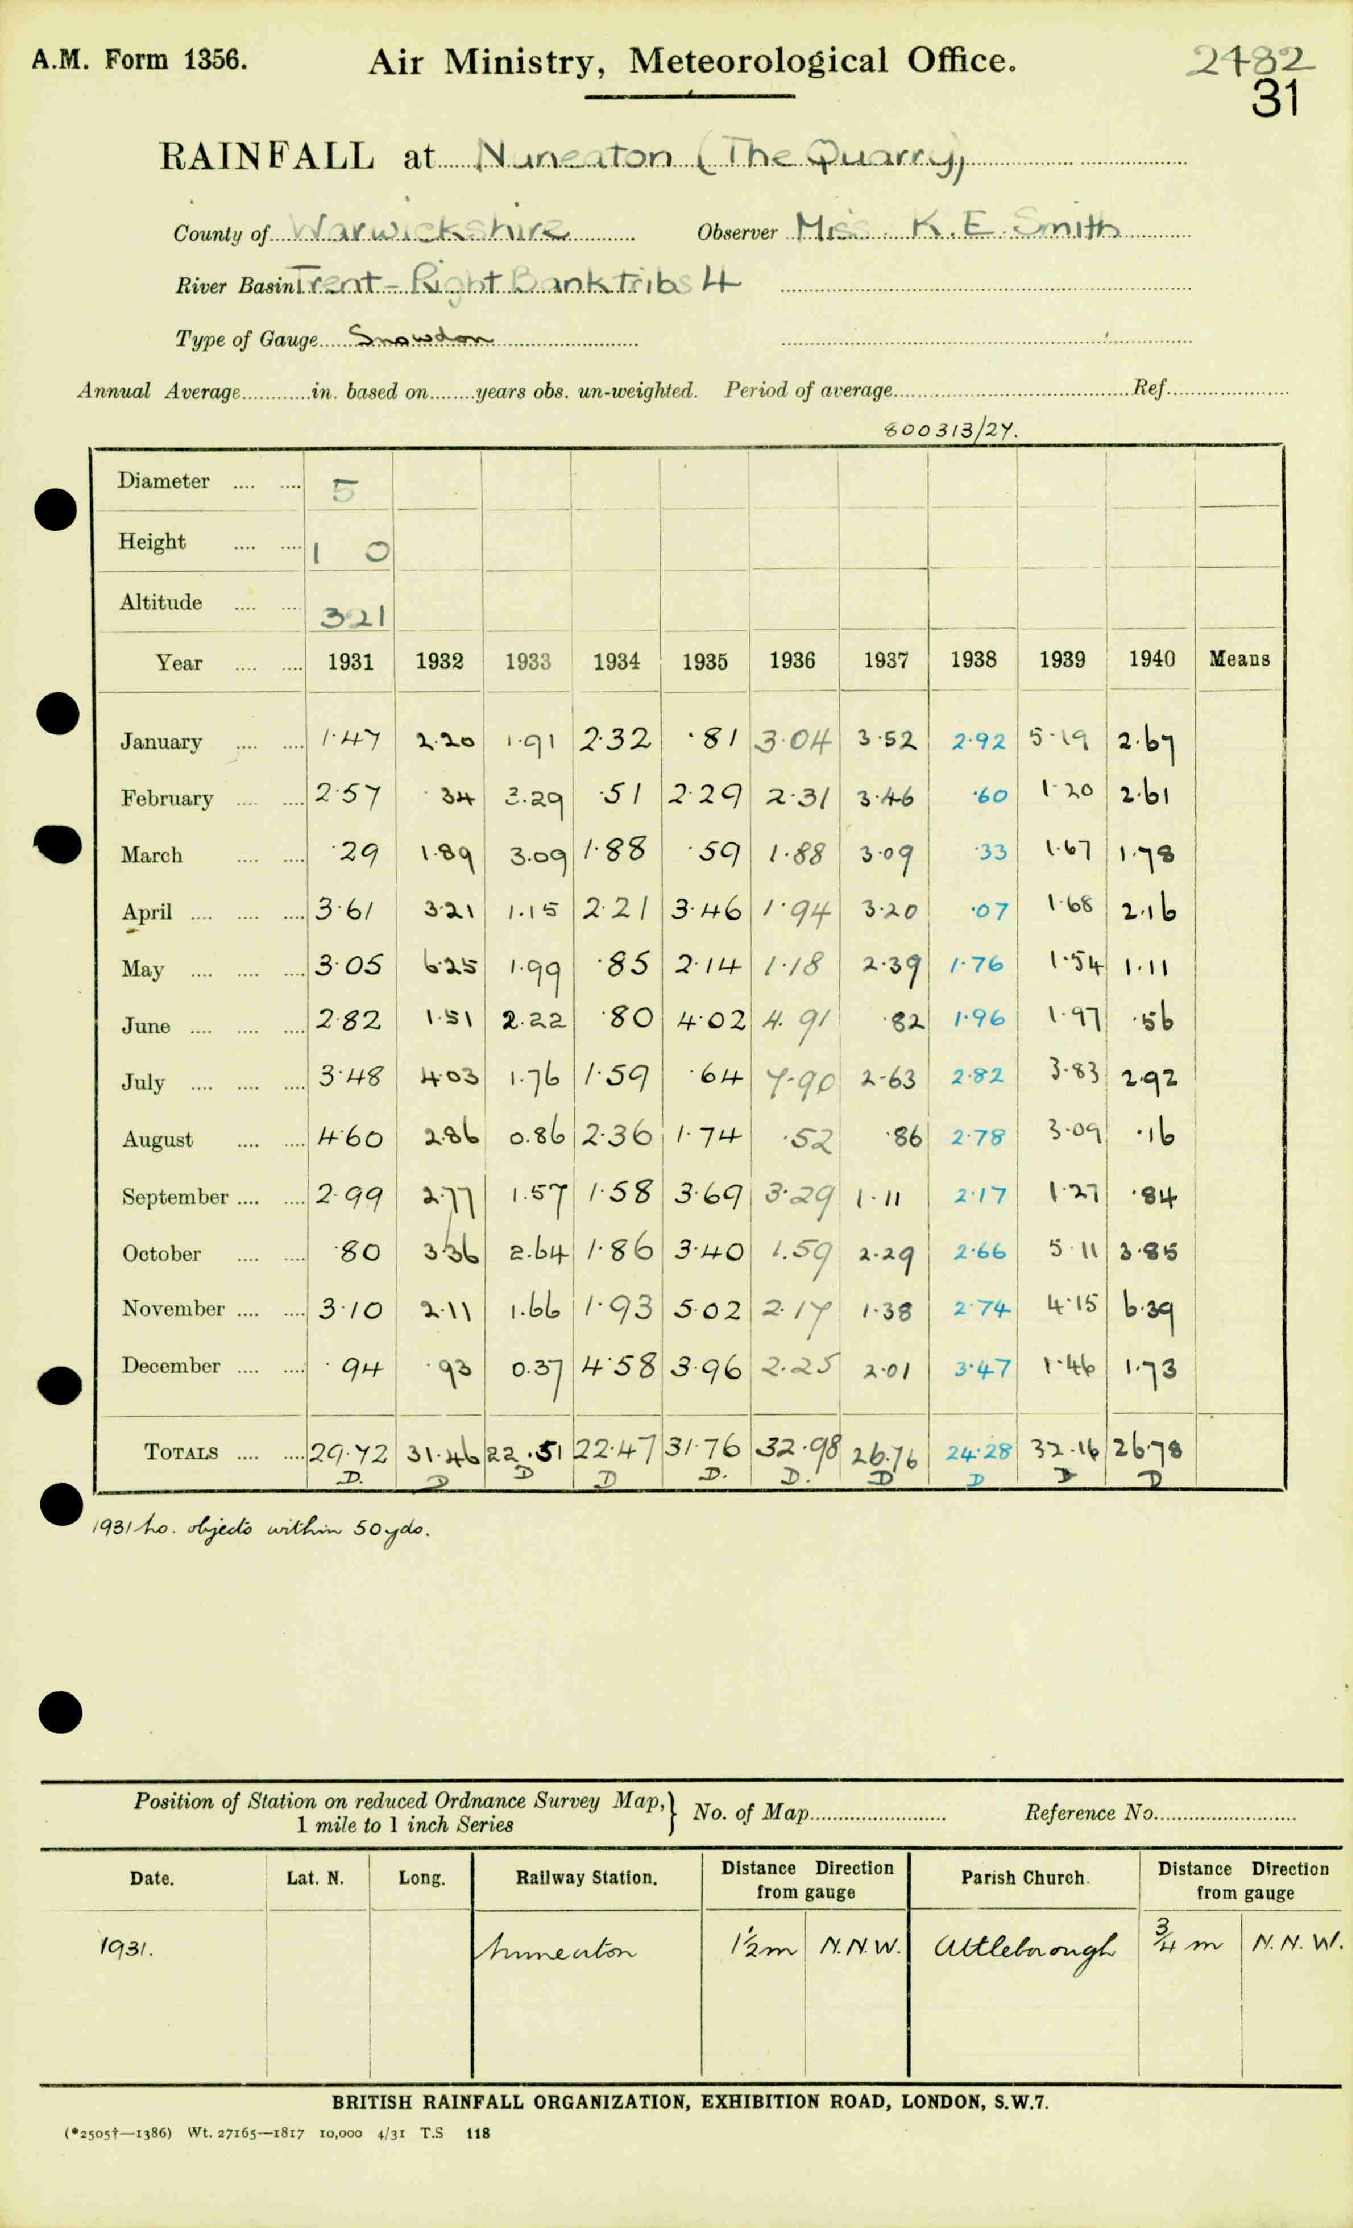 A.M. Form 1356. Air Ministry, Meteorological Office. 2482
31
RAINFALL at Nuneaton (The Quarry)
County of Warwickshire Observer Miss K. E. Smith
River Basin Trent - Right Bank tribs 4
Type of Gauge Snowdon
Annual Average in. based on years obs. un-weighted. Period of average Ref.
800313/27.
Diameter 5
Height 1 0
Altitude 321
Year 1931 1932 1933 1934 1935 1936 1937 1938 1939 1940 Means
January 1·47 2·20 1·91 2·32 ·81 3·04 3·52 2·92 5·19 2·67
February 2·57 ·34 3·29 ·51 2·29 2·31 3·46 ·60 1·20 2·61
March ·29 1·89 3·09 1·88 ·59 1·88 3·09 ·33 1·67 1·78
April 3·61 3·21 1·15 2·21 3·46 1·94 3·20 ·07 1·68 2·16
May 3·05 6·25 1·99 ·85 2·14 1·18 2·39 1·76 1·54 1·11
June 2·82 1·51 2·22 ·80 4·02 4·91 ·82 1·96 1·97 ·56
July 3·48 4·03 1·76 1·59 ·64 7·90 2·63 2·82 3·83 2·92
August 4·60 2·86 0·86 2·36 1·74 ·52 ·86 2·78 3·09 ·16
September 2·99 2·77 1·57 1·58 3·69 3·29 1·11 2·17 1·27 ·84
October ·80 3·36 2·64 1·86 3·40 1·59 2·29 2·66 5·11 3·85
November 3·10 2·11 1·66 1·93 5·02 2·17 1·38 2·74 4·15 6·39
December ·94 ·93 0·37 4·58 3·96 2·25 2·01 3·47 1·46 1·73
TOTALS 29·72 31·46 22·51 22·47 31·76 32·98 26·76 24·28 32·16 26·78
D. D D D D. D. D D D D
1931 no. objects within 50 yds.
Position of Station on reduced Ordnance Survey Map, } No. of Map Reference No.
1 mile to 1 inch Series
Date. Lat. N. Long. Railway Station. Distance Direction from gauge Parish Church. Distance Direction from gauge
1931. Nuneaton 1½ m N.N.W. Attleborough ¾ m N.N.W.
BRITISH RAINFALL ORGANIZATION, EXHIBITION ROAD, LONDON, S.W.7.
(*2505†—1386) Wt. 27165—1817 10,000 4/31 T.S 118